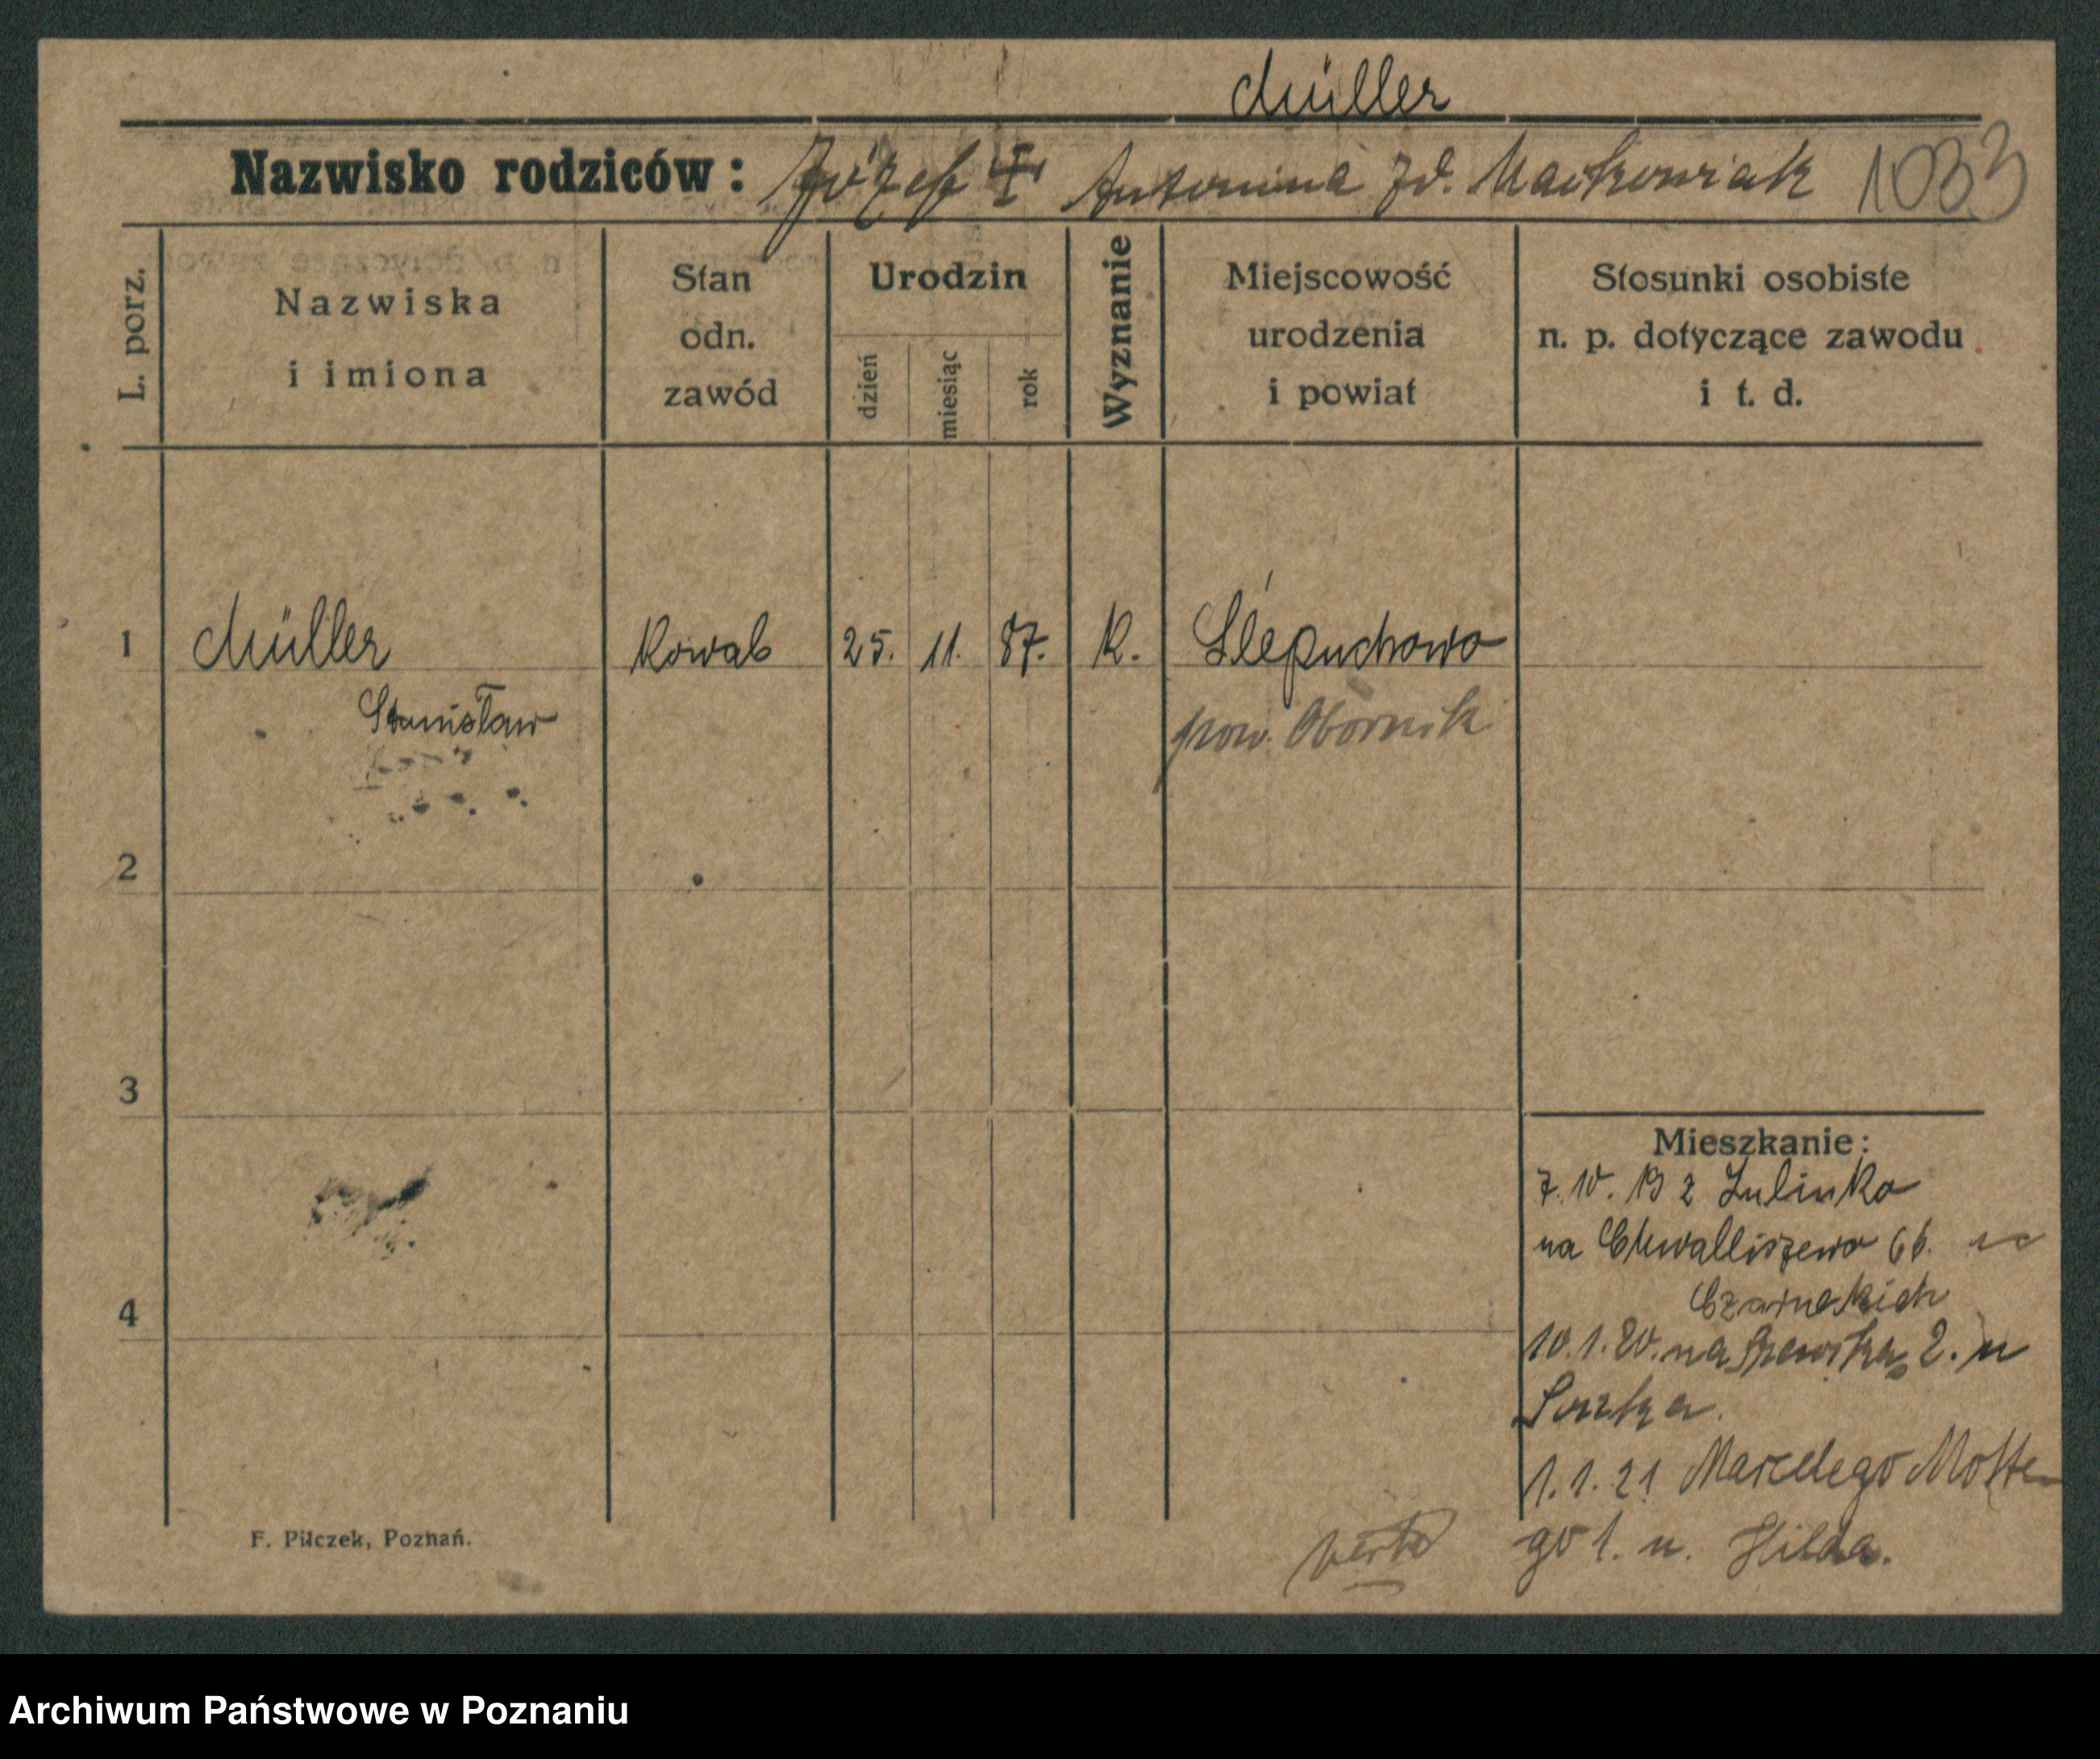 Müller
Nazwisko rodziców: Józef Antonina zd. Maćkowiak 1033
L. porz.
Nazwiska
i imiona
Stan
odn.
zawód
Urodzin
dzień
miesiąc
rok
Wyznanie
Miejscowość
urodzenia
i powiat
Stosunki osobiste
n. p. dotyczące zawodu
i t. d.
1 Müller Kowal 25. 11. 87. K. Ślepuchowo
Stanisław pow. Obornik
2
3
4
Mieszkanie:
7. 10. 19 z Lulinka
na Chwalliszewo 66.
Czarneckich
10.1.20. na 2. u
1.1.21 Marcelego Motte-
go 1. u. Hilda.
F. Pilczek, Poznań.
Archiwum Państwowe w Poznaniu